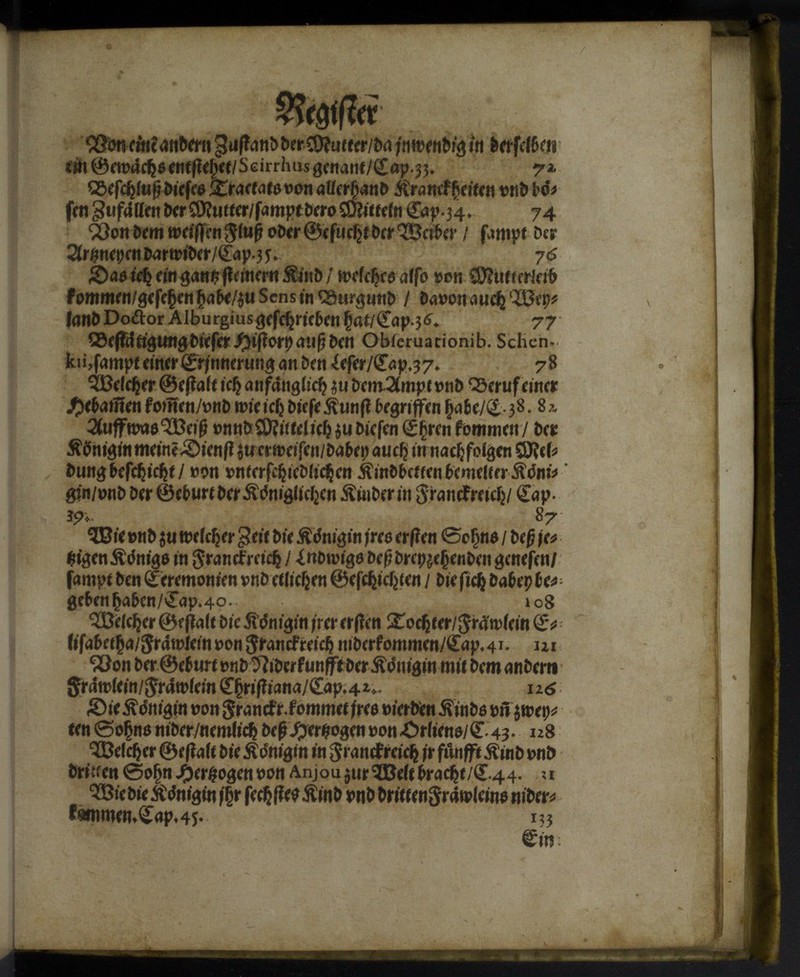 Register
Von eine andern Zustand der Mutter/da inwendig in derselben
ein Gewächs entstehet/Scirrhus genant/Cap.33. 72
Beschluß dieses Tractats von allerhand Kranckheiten vnd bö⸗
sen Zufällen der Mutter/sampt dero Mitteln Cap.34. 74
Von dem weissen Fluß oder Gesucht der Weiber / sampt der
Artzneyen darwider/Cap.35. 76
Das ich ein gantz steinern Kind / welches also von Mutterleib
kommen/gesehen habe/zu Sens in Burgund / davon auch Wey⸗
land Doctor Alburgius geschrieben hat/Cap.36. 77
Bestätigung dieser History auß den Observationib. Schen-
kii,sampt einer Erinnerung an den Leser/Cap.37. 78
Welcher Gestalt ich anfänglich zu dem Ampt vnd Beruf einer
Hebamen komen/vnd wie ich diese Kunst begriffen habe/C.38. 82
Auff was Weiß vnnd Mittel ich zu diesen Ehren kommen / der
Königin meine Dienst zu erweisen/dabey auch in nachfolgen Mel⸗
dung beschicht / von vnterschiedlichen Kindbetten bemelter Köni⸗
gin/vnd der Geburt der Königlichen Kinder in Franckreich/ Cap.
39. 87
Wie vnd zu welcher Zeit die Königin jres ersten Sohns / deß je⸗
tzigen Königs in Franckreich / Ludwigs deß dreyzehenden genesen/
sampt den Ceremonien vnd etlichen Geschichten / die sich dabey be⸗
geben haben/Cap.40. 108
Welcher Gestalt die Königin jrer ersten Tochter/Fräwlein E⸗
lisabetha/Fräwlein von Franckreich niderkommen/Cap.41. 121
Von der Geburt vnd Niderkunfft der Königin mit dem andern
Fräwlein/Fräwlein Christiana/Cap.42. 126
Die Königin von Franckr.kommet jres vierden Kinds vn zwey⸗
ten Sohns nider/nemlich deß Hertzogen von Orliens/C.43. 128
Welcher Gestalt die Königin in Franckreich jr fünfft Kind vnd
dritten Sohn Hertzogen von Anjou zur Welt bracht/C.44. 31
Wie die Königin ihr sechstes Kind vnd dritten Fräwleins nider⸗
kommen.Cap.45. 133
Ein